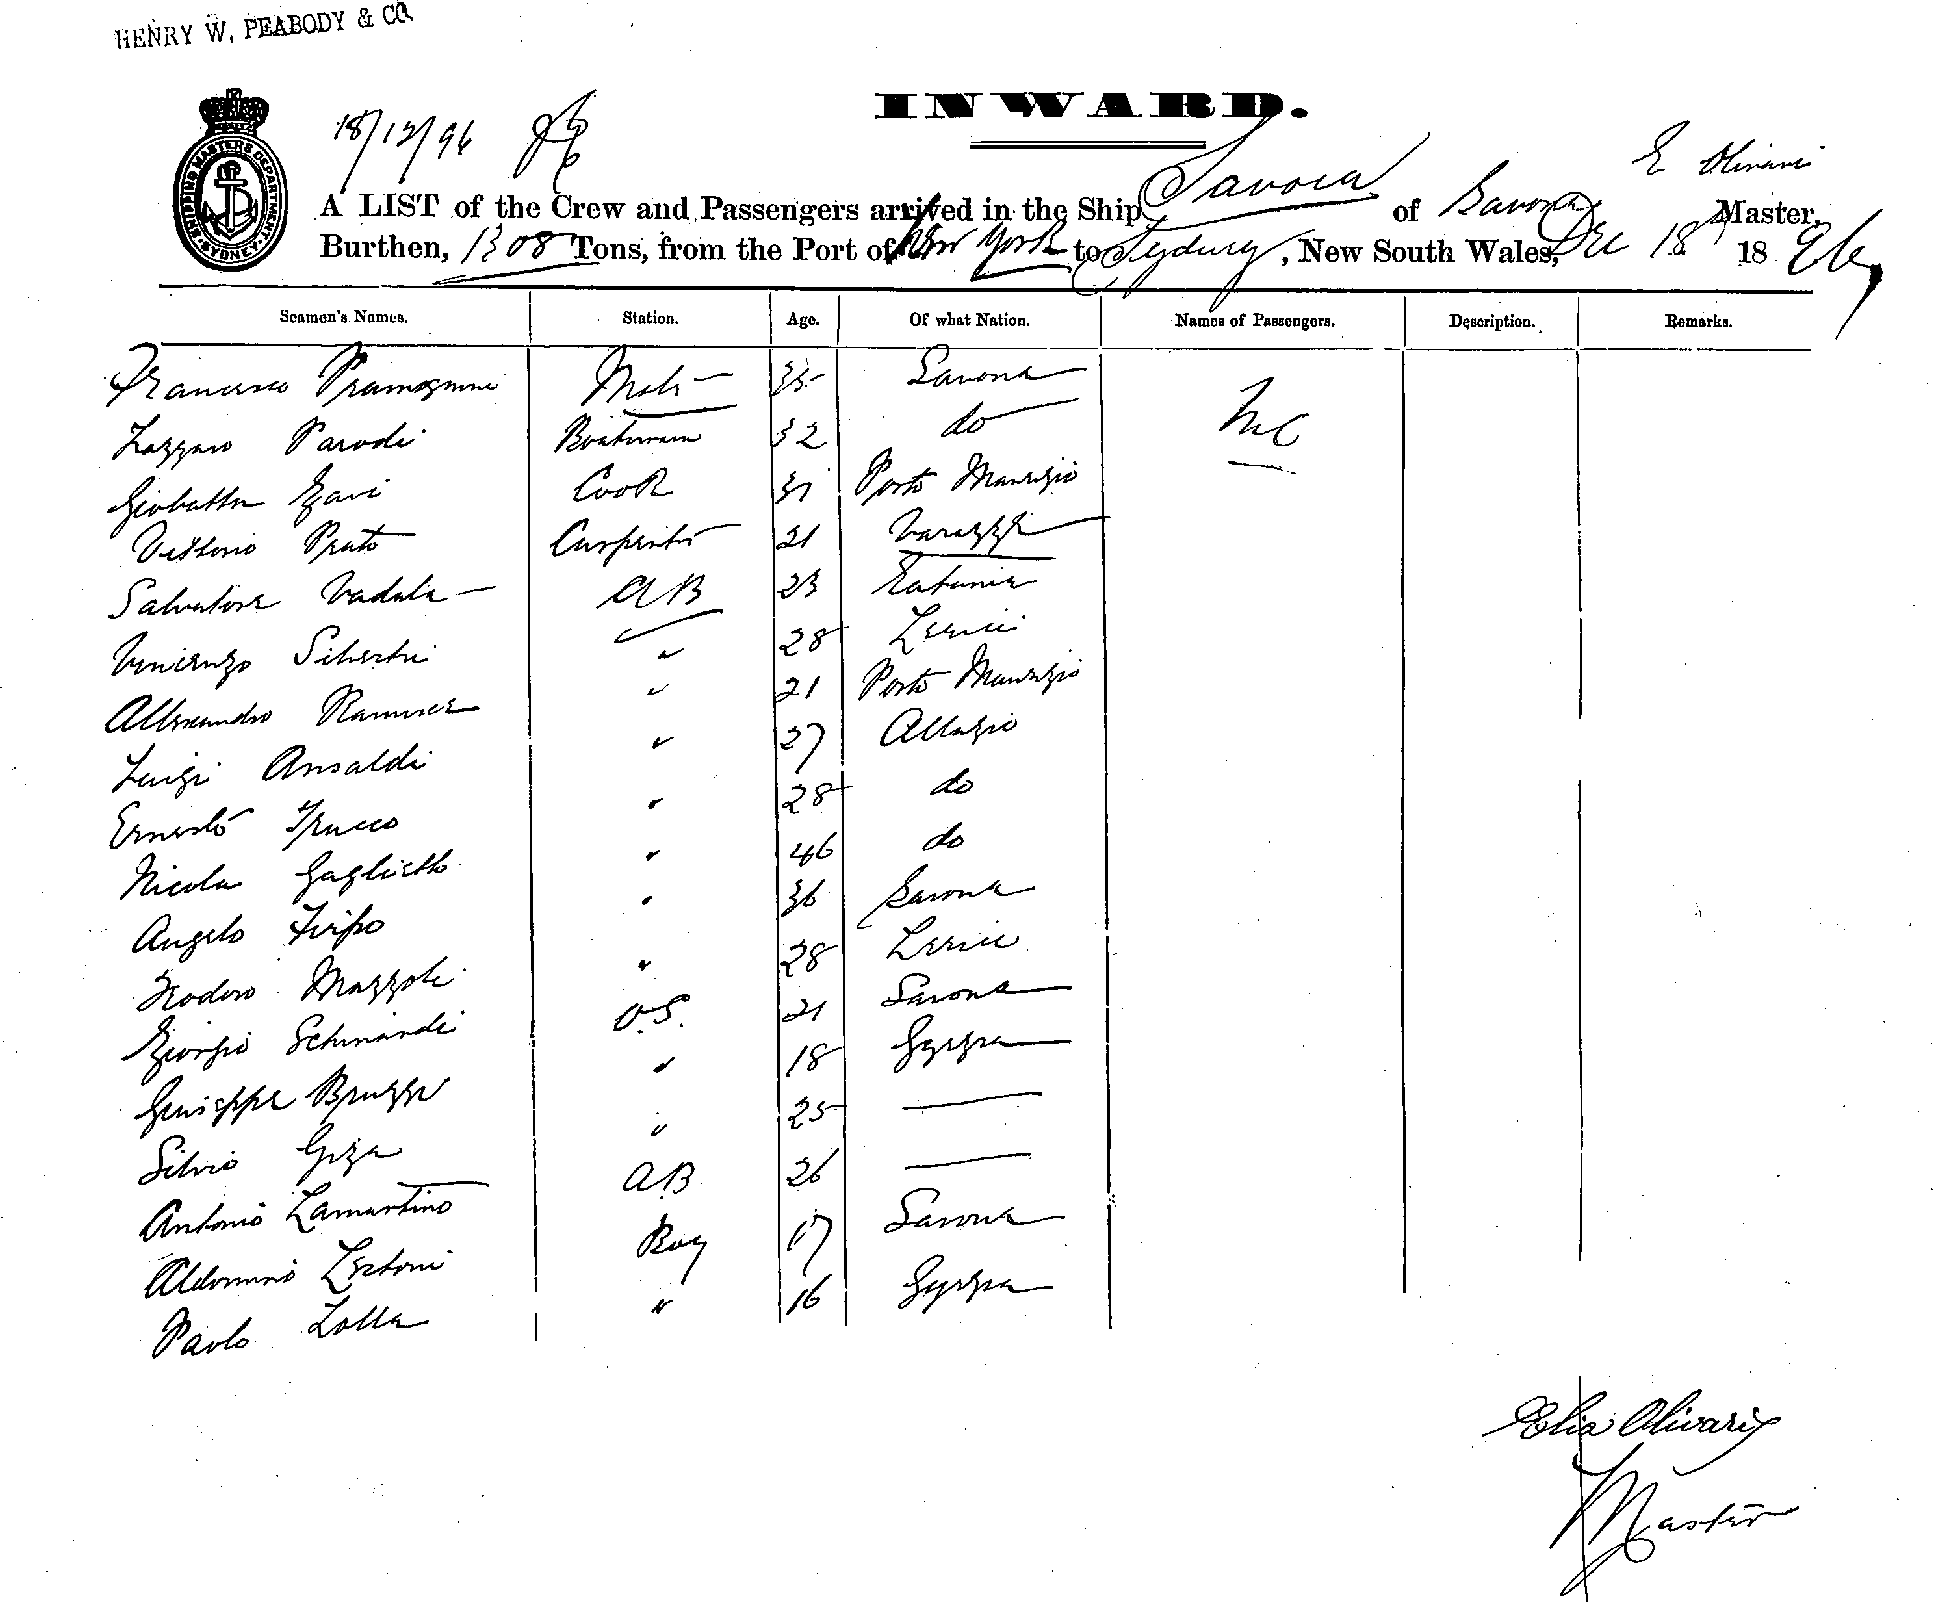 HENRY W. PEABODY & CO.
INWARD.
18/12/96
SHIPPING MASTERS DEPARTMENT SYDNEY
E Olivari
A LIST of the Crew and Passengers arrived in the Ship Savoia of Savona Master,
Burthen, 1308 Tons, from the Port of New York to Sydney, New South Wales, Dec 18th 1896
Seamen's Names. Station. Age. Of what Nation. Names of Passengers. Description. Remarks.
Francesco Mate 35 Savona
Lazzaro Parodi Boatswain 32 do Nil
Giobatta Gavi Cook 31 Porto Maurizio
Vittorio Prato Carpenter 21 Varazze
Salvatore Vadala AB 23 Catania
Vincenzo Silvestri " 28 Lerici
Allessandro " 21 Porto Maurizio
Luigi Ansaldi " 27 Allasio
Ernesto Trucco " 28 do
Nicola Gaglietto " 46 do
Angelo Firpo " 36 Savona
Teodoro Mazzoli " 28 Lerici
Giorgio O.S. 21 Savona
Giuseppe Bruzze " 18
Silvio Giza " 25 —
Antonio Lamartino AB 26 —
Lertoni Boy 17 Savona
Paolo Lolla " 16
Elia Olivari
Master